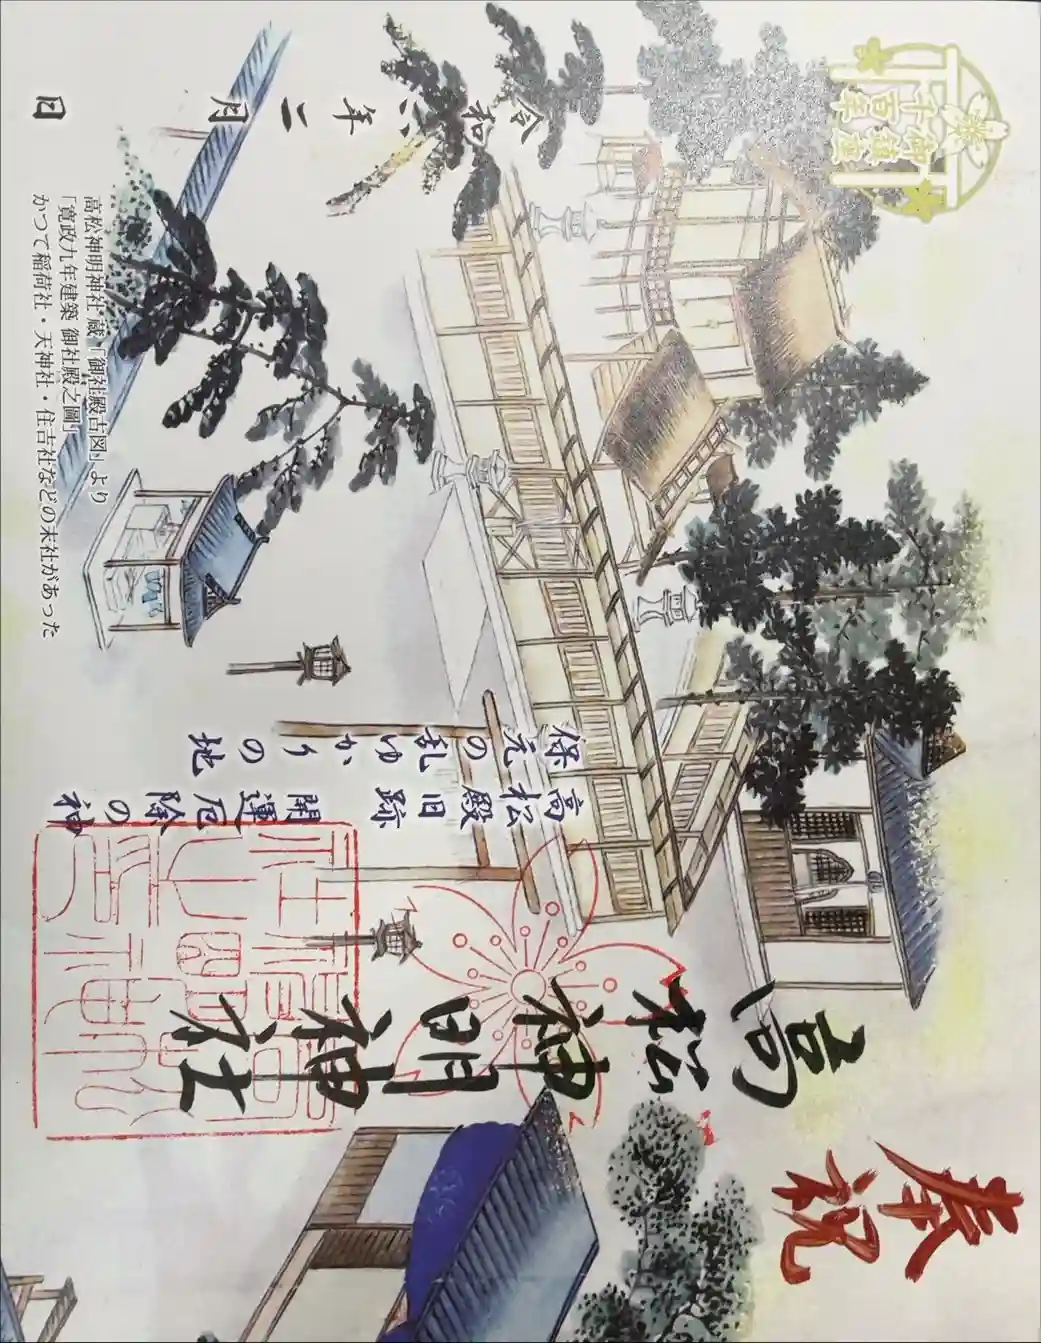 奉祝
高松神明神社
高松殿旧跡 開運厄除の神
保元の乱ゆかりの地
御鎮座
千百年
令和六年二月 日
高松神明神社 蔵「御社殿古図」より
「寛政九年建築 御社殿之圖」
かつて稲荷社・天神社・住吉社などの末社があった